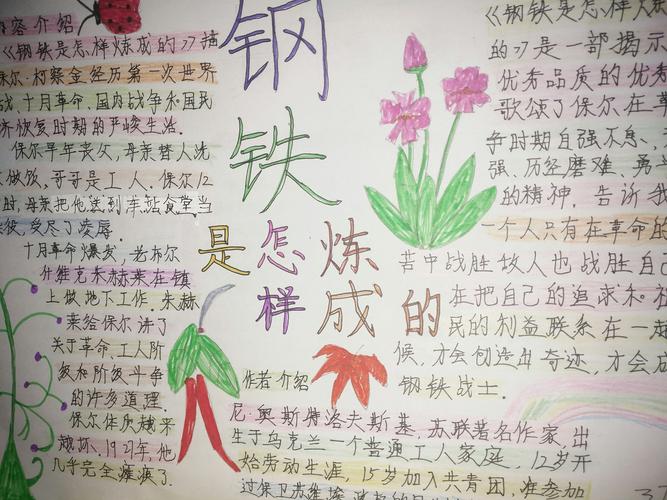 容介绍
《钢铁是怎样炼成的》描
保尔.柯察金经历第一次世界
战.十月革命.国内战争和国民
济恢复时期的严峻生活.
保尔早年丧父,母亲替人洗
做饭,哥哥是工人.保尔12
时,母亲把他送到车站食堂当
役,受尽了凌辱.
十月革命爆发,老布尔
什维克朱赫莱在镇
上做地下工作.朱赫
莱给保尔讲了
关于革命、工人阶
级和阶级斗争
的许多道理.
保尔体质越来
越坏,1927年,他
几乎完全瘫痪了.
钢铁是怎样炼成的
作者介绍
尼.奥斯特洛夫斯基.苏联著名作家,出
生于乌克兰一个普通工人家庭.12岁开
始劳动生涯,15岁加入共青团,准参加
过保卫苏维埃
《钢铁是怎样炼
的》是一部揭示
优秀品质的优秀
歌颂了保尔在革
争时期自强不息、
强、历经磨难、勇
的精神.告诉我
一个人只有在革命的
苦中战胜敌人也战胜自己
在把自己的追求和
民的利益联系在一起
候,才会创造出奇迹,才会成
钢铁战士.